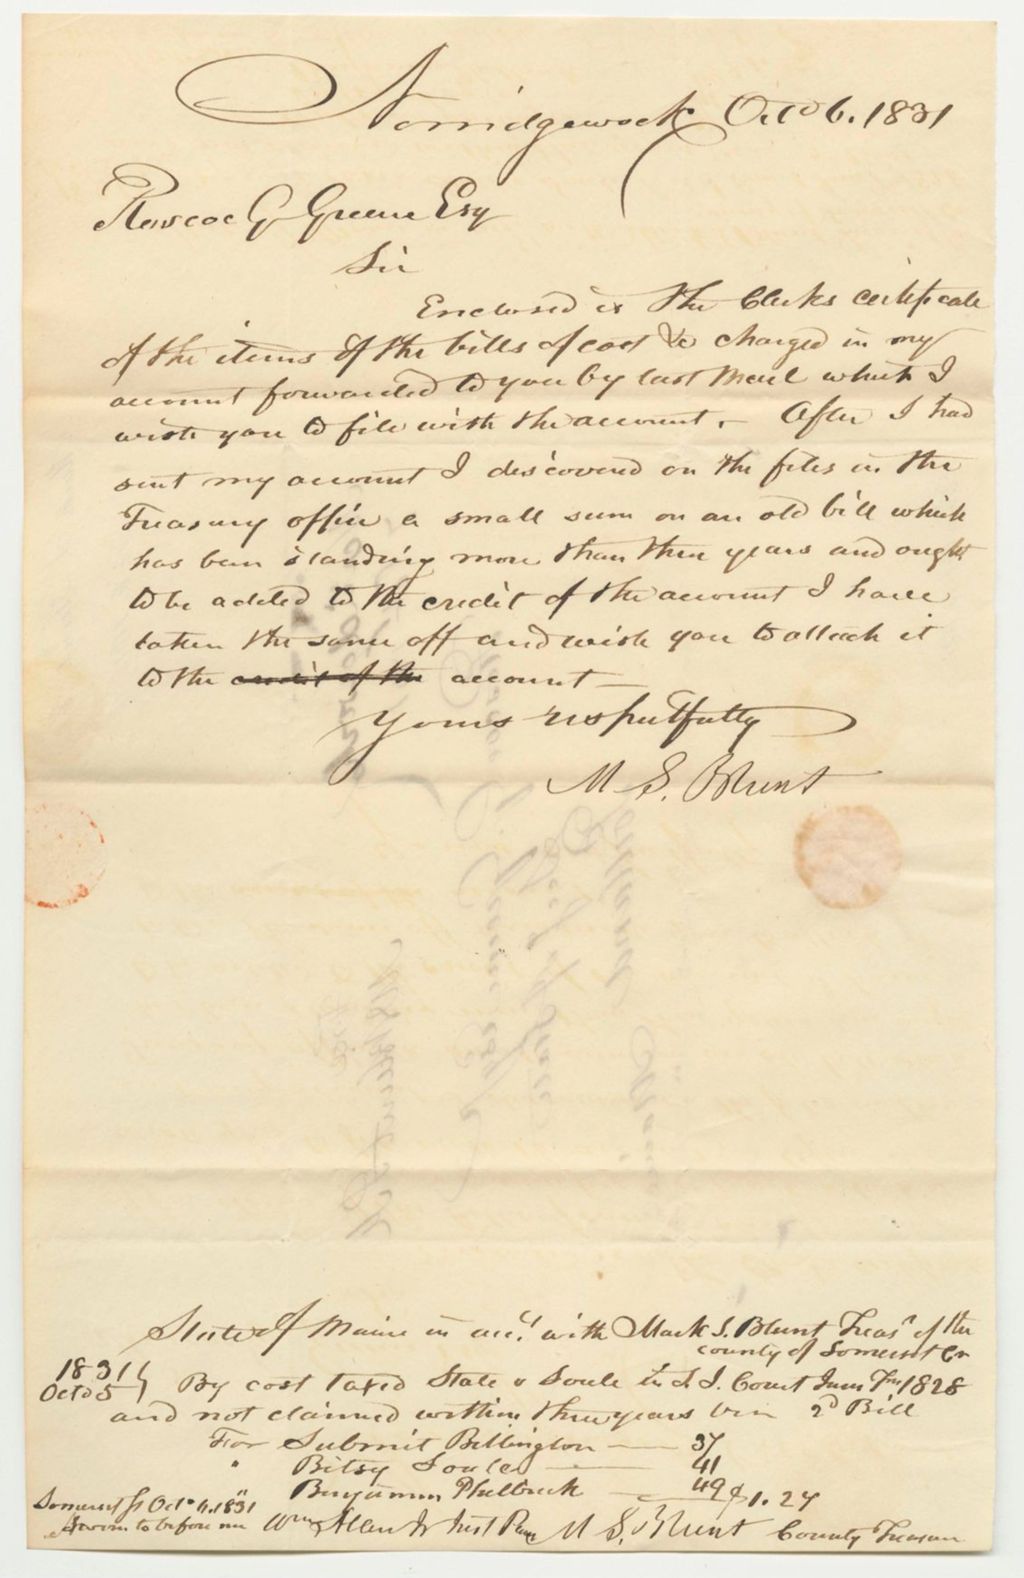 Norridgewock Octo 6. 1831
Roscoe G Greene Esq
Sir
Enclosed is the Clerks certificate
of the items of the bills of cost &c charged in my
account forwarded to you by last Mail which I
wish you to file with the account. - After I had
sent my account I discovered on the files in the
Treasury office a small sum on an old bill which
has been standing more than three years and ought
to be added to the credit of the account I have
taken the same off and wish you to attach it
to the credit of the account —
Yours respectfully
M S. Blunt
State of Maine in acct. with Mark S. Blunt Treasr of the
county of Somerset Cr
1831
Octo 5 } By cost taxed State v Soule in S. J. Court June Tm 1828
and not claimed within three years 2d Bill
For Submit Billington — 37
" Bitsy Soule — 41
" Benjamin Philbrick — 49 $1.27
Somerset ss Octo 6. 1831
Sworn to before me Wm Allen Jr Just Peace M S. Blunt County Treasurer